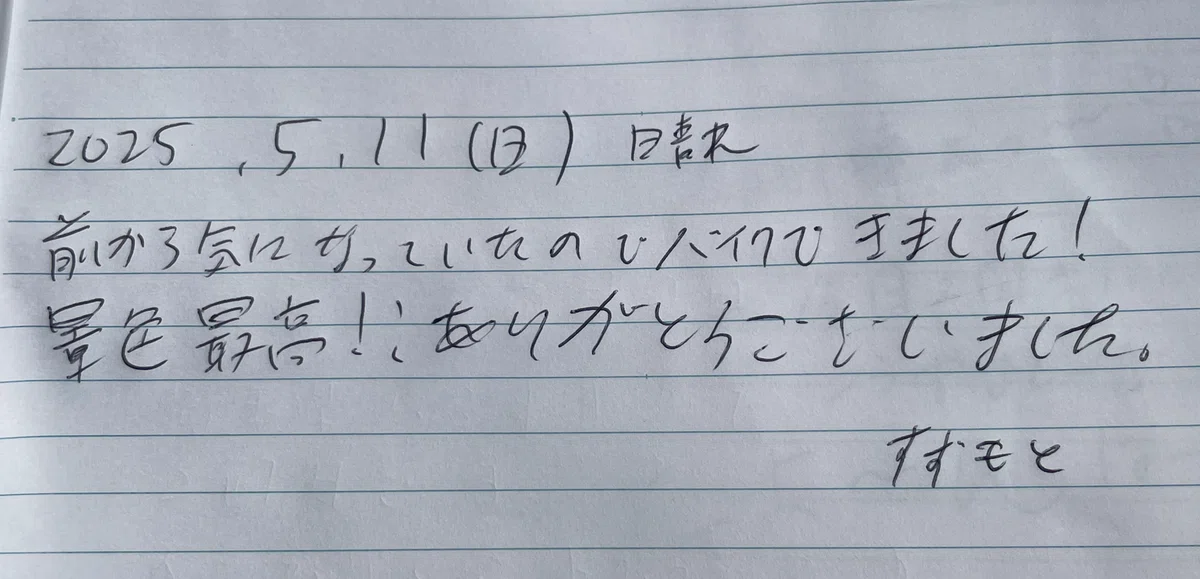 2025.5.11(日) 晴れ
前から気になっていたのでバイクできました!
景色最高!! ありがとうございました。
すずもと